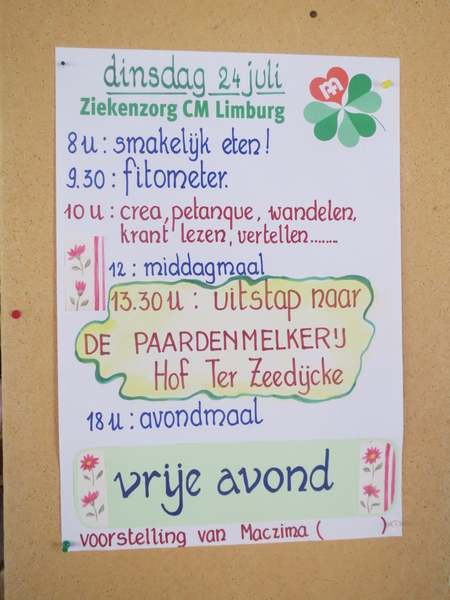 dinsdag 24 juli
Ziekenzorg CM Limburg
8 u : smakelijk eten!
9.30 : fitometer.
10 u : crea, petanque, wandelen,
krant lezen, vertellen........
12 : middagmaal
13.30 u : uitstap naar
DE PAARDENMELKERIJ
Hof Ter Zeedijcke
18 u : avondmaal
vrije avond
voorstelling van Maczima ( )